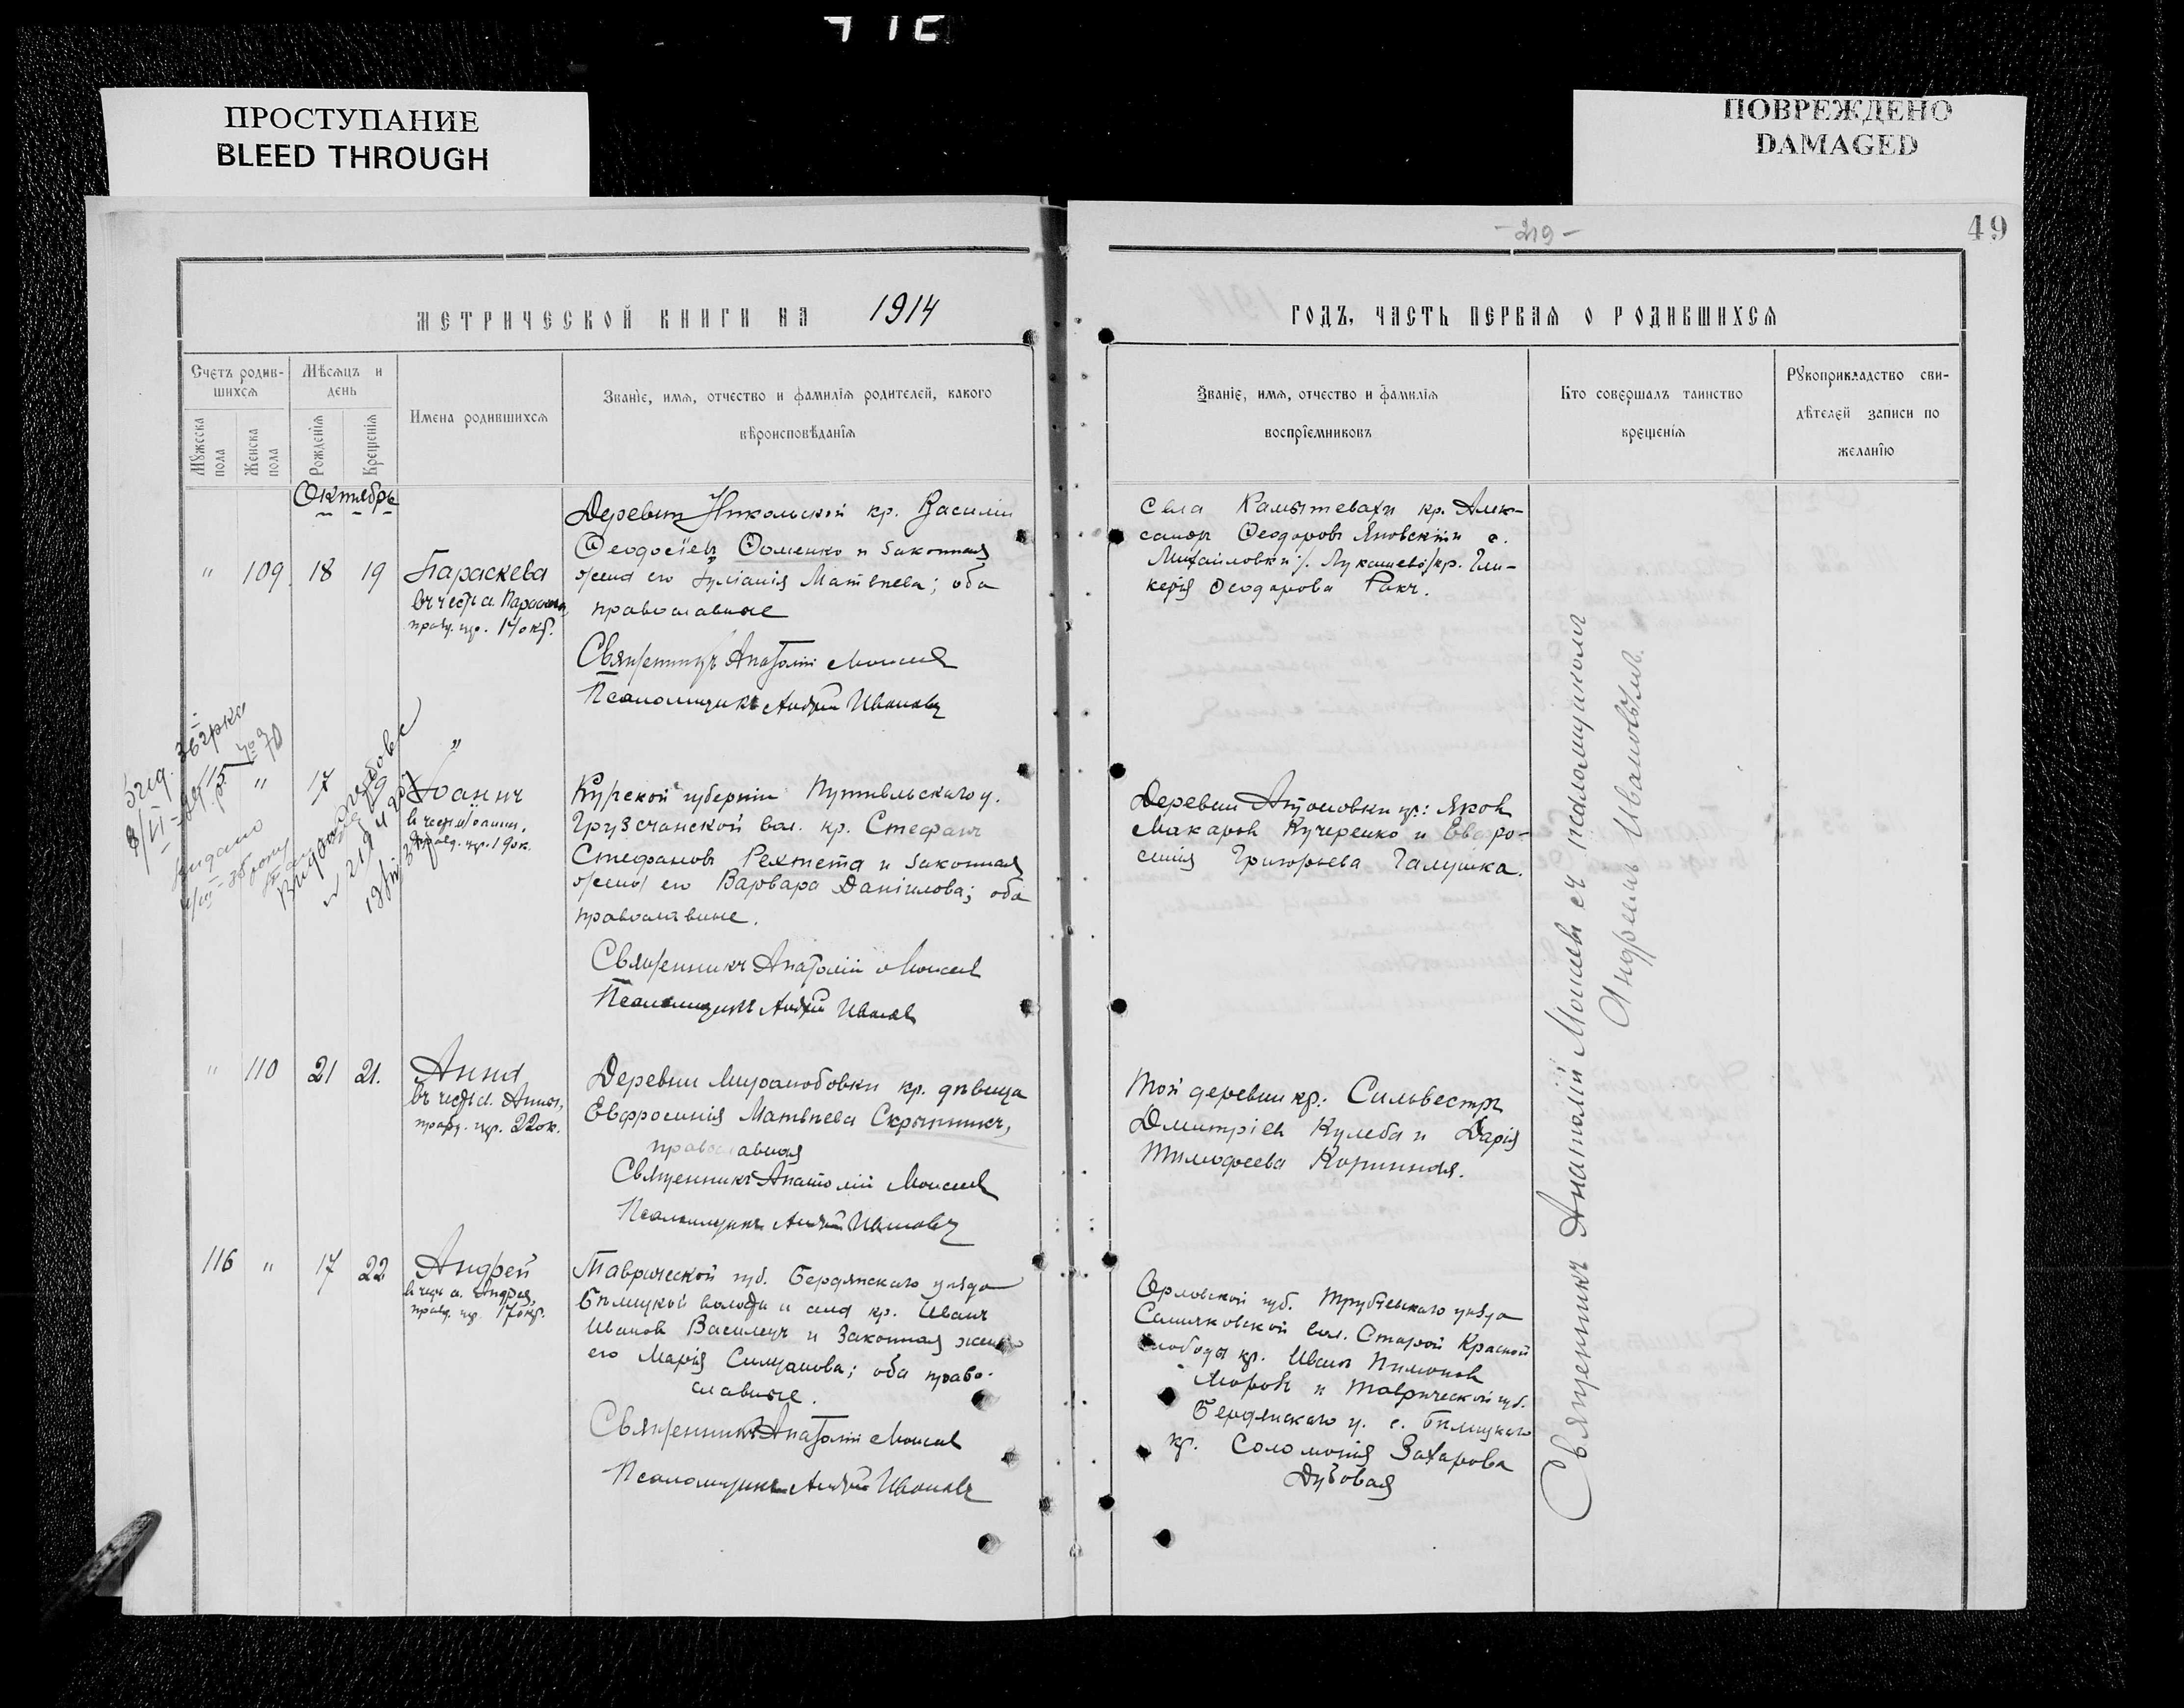 ПРОСТУПАНИЕ
BLEED THROUGH
ПОВРЕЖДЕНО
DAMAGED
49
МЕТРИЧЕСКОЙ КНИГИ НА 1914
ГОДЪ, ЧАСТЬ ПЕРВАЯ О РОДИВШИХСЯ
Счетъ родив-
шихся
Мѣсяцъ и
день
Мужеска
пола
Женска
пола
Рожденія
Крещенія
Имена родившихся
Званіе, имя, отчество и фамилія родителей, какого
вѣроисповѣданія
Званіе, имя, отчество и фамилія
воспріемниковъ
Кто совершалъ таинство
крещенія
Рукоприкладство сви-
дѣтелей записи по
желанію
Октябрь
" 109. 18 19
Параскева
въ честь св.
празд. 14 окт.
Деревни Никольской кр. Василій
Ѳеодосіевъ Ѳоменко и законная
жена его Іуліанія Матвѣева; оба
православные
Священникъ Анатолій Моисеев
Псаломщикъ Андрей Ивановъ
Села Камышевахи кр. Алек-
сандръ Ѳеодоровъ Яновскій и с.
Михайловки /Лукашево/ кр. Гли-
керія Ѳеодорова Ракъ.
115 " 17 19
Іоаннъ
Курской губерніи Путивльскаго у.
Грузчанской вол. кр. Стефанъ
Стефановъ Рехтета и законная
жена его Варвара Даніилова; оба
православные.
Священникъ Анатолій Моисеев
Псаломщикъ Андрей Ивановъ
Деревни Антоновки кр: Яковъ
Макаровъ Кучеренко и Евфро-
синія Григорьева Галушка.
" 110 21 21.
Анна
въ честь св. Анны,
празд. 22 ок.
Деревни Миролюбовки кр. дѣвица
Евфросинія Матвѣева Скрыпникъ,
православная
Священникъ Анатолій Моисеев
Псаломщикъ Андрей Ивановъ
Той деревни кр: Сильвестръ
Дмитріевъ Кулеба и Дарія
Тимофеева
116 " 17 22
Андрей
въ честь св. Андрея,
празд. 17 окт.
Таврической губ. Бердянскаго уѣзда
волости и села кр. Иванъ
Ивановъ Василецъ и законная жена
его Марія; оба право-
славные.
Священникъ Анатолій Моисеев
Псаломщикъ Андрей Ивановъ
Орловской губ. Трубчевскаго уѣзда
вол. Старой Красной
Слободы кр. Иванъ
Моровъ и Таврической губ.
Бердянскаго у. с.
кр. Соломонія Захарова
Дубовая
Священникъ Анатолій Моисеевъ съ псаломщикомъ
Андреемъ Ивановымъ.